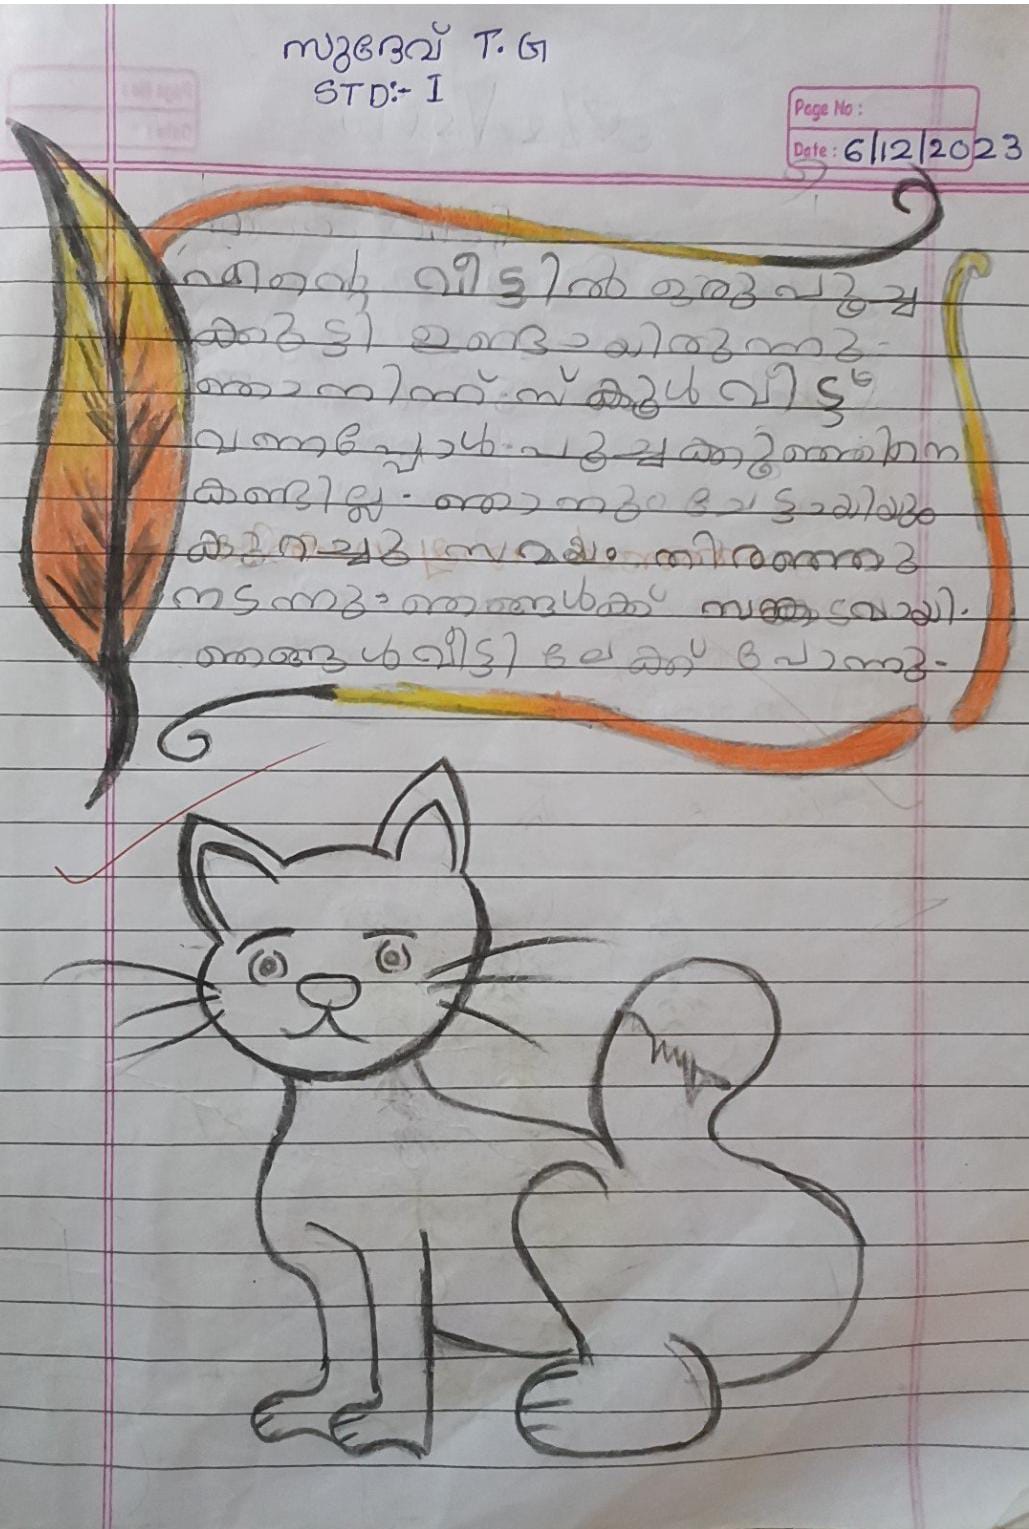 സുദേവ് T. G
STD:- I
Page No :
Date : 6/12/2023
എന്റെ വീട്ടിൽ ഒരു പൂച്ച
ക്കുട്ടി ഉണ്ടായിരുന്നു.
ഞാനിന്ന് സ്കൂൾ വിട്ട്
വന്നപ്പോൾ പൂച്ചക്കുഞ്ഞിനെ
കണ്ടില്ല. ഞാനും ചേട്ടായിയും
കുറച്ചു സമയം തിരഞ്ഞു
നടന്നു. ഞങ്ങൾക്ക് സങ്കടമായി.
ഞങ്ങൾ വീട്ടി ലേക്ക് പോന്നു.